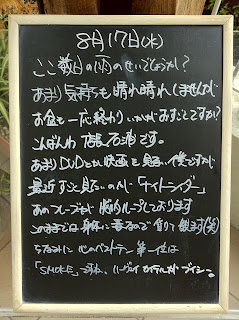 8月17日(水)
ここ数日の雨のせいでしょうか?
あまり気持ちも晴れ晴れしませんが
お盆も一応終わり いかがおすごしですか?
こんばんわ 店長石浦です。
あまりDVDとか映画を見ない僕ですが
最近ずっと見ているのが「ナイトライダー」
あのフレーズが脳内ループしております
このままでは身体に毒なので 借りて観ます(笑)
ちなみに 心のベストテン第一位は
「SMOKE」 ハーヴェイ カイテルがナイシー。